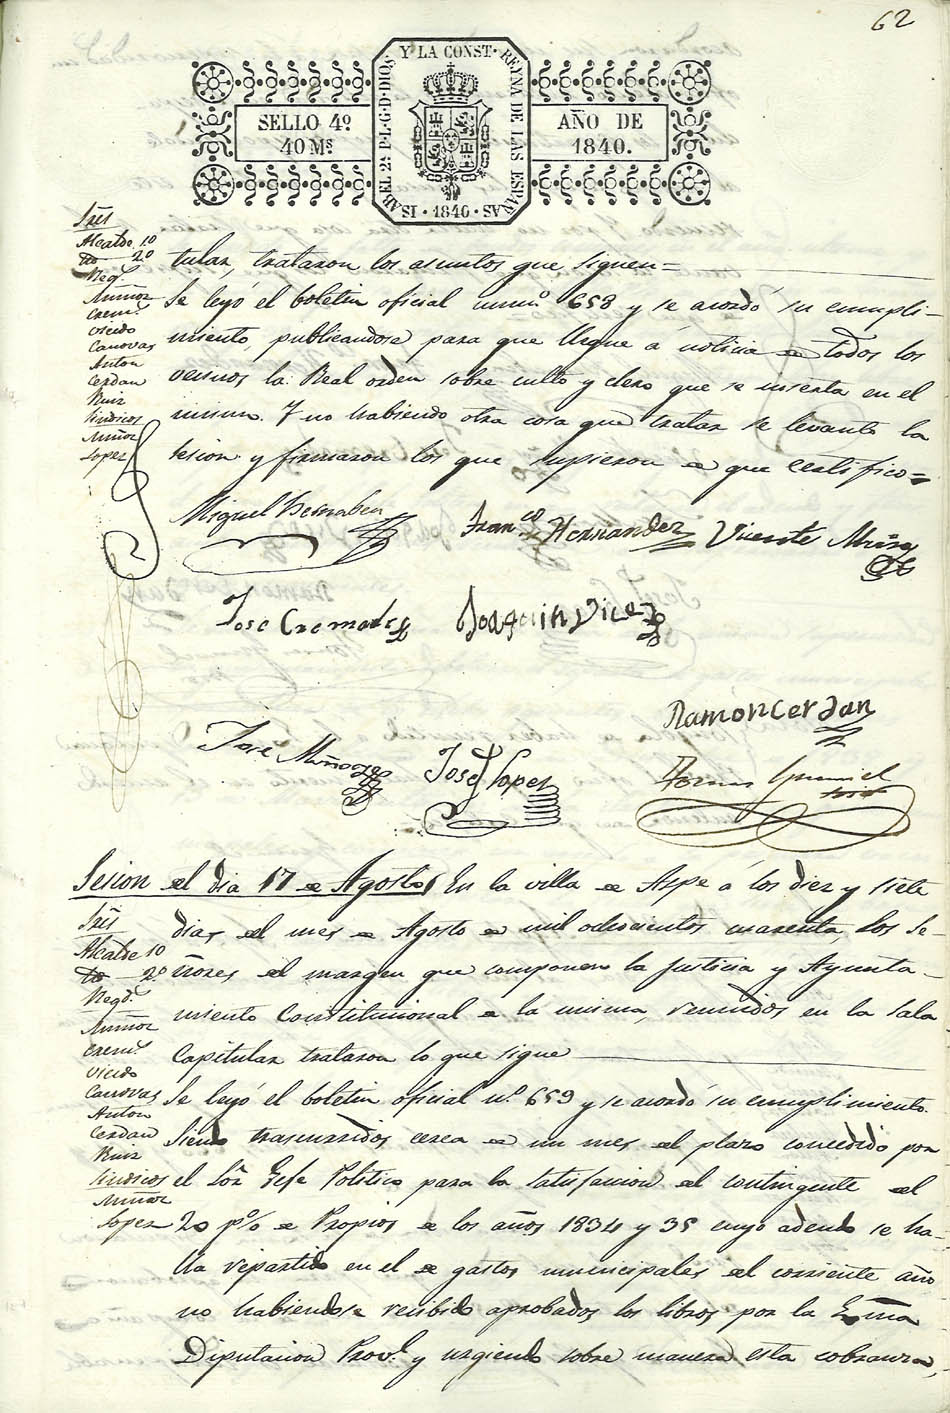 62
ISABEL 2ª P.L.G.D.DIOS Y LA CONST. REYNA DE LAS ESPAÑAS
SELLO 4º
40 Ms
AÑO DE
1840.
1840
Sres
Alcalde 1º
Yo 2º
Regs
Muñoz
Crem.s
Vicedo
Canovas
Anton
Cerdan
Ruiz
Sindicos
Muñoz
Lopez
tular, trataron los asuntos que siguen=
Se leyó el boletin oficial num.º 658 y se acordó su cumpli-
miento, publicandose para que llegue á noticia de todos los
vecinos la Real orden sobre culto y clero que se inserta en el
mismo. Y no habiendo otra cosa que tratar se levantó la
sesion y firmaron los que supieron de que certifico=
Miguel Bernabeu
Franco Hernandez
Vicente Muñoz
Jose Cremades
Joaquin Vicedo
Ramon Cerdan
José Muñoz
José Lopez
Sesion del dia 17 de Agosto, En la villa de Aspe á los diez y siete
dias del mes de Agosto de mil ochocientos cuarenta, los Se-
ñores del margen que componen la Justicia y Ayunta-
miento Constitucional de la misma, reunidos en la Sala
Capitular trataron lo que sigue
Sres
Alcalde 1º
Yo 2º
Regd.s
Muñoz
Crem.s
Vicedo
Canovas
Anton
Cerdan
Ruiz
Sindicos
Muñoz
Lopez
Se leyó el boletin oficial n.º 659 y se acordó su cumplimiento.
Siendo trascurridos cerca de un mes del plazo concedido por
el Sor. Gefe Politico para la satisfacion del contingente del
20 p% de Propios de los años 1834 y 35 cuyo adeudo se ha-
lla repartido en el de gastos municipales del corriente año
no habiendose recibido aprobados los libros por la Exma
Diputacion Prov.l y urgiendo sobre manera esta cobranza,